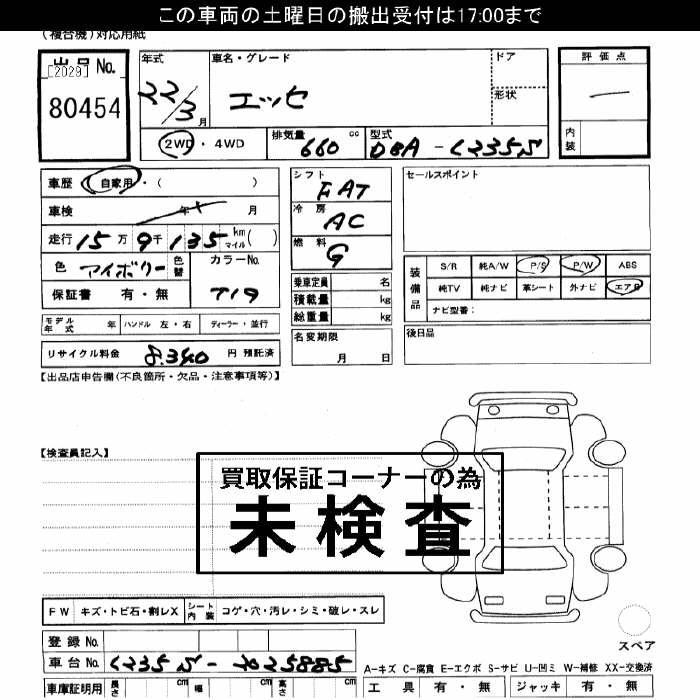 この車両の土曜日の搬出受付は17:00まで
(複合機)対応用紙
出品No.
[2029]
80454
年式
22/3月
車名・グレード
エッセ
ドア
形状
評価点
内装
2WD・4WD
排気量 660 cc
型式 DBA-L235S
車歴 自家用・( )
車検 年 月
走行 15万9千135 km マイル( )
色 アイボリー 色替
カラーNo.
719
保証書 有・無
シフト
FAT
冷房
AC
燃料
G
乗車定員 名
積載量 kg
総重量 kg
セールスポイント
装備品
S/R 純A/W P/S P/W ABS
純TV 純ナビ 革シート 外ナビ エアB
ナビ型番:
モデル年式 年 ハンドル 左・右 ディーラー・並行
名変期限
月 日
後日品
リサイクル料金 8,340 円 預託済
【出品店申告欄(不良箇所・欠品・注意事項等)】
【検査員記入】
買取保証コーナーの為
未検査
FW キズ・トビ石・割レX シート内装 コゲ・穴・汚レ・シミ・破レ・スレ
スペア
登録No.
車台No. L235S-2025885
A-キズ C-腐食 E-エクボ S-サビ U-凹ミ W-補修 XX-交換済
車庫証明用 長さ cm 幅 cm 高さ cm
工具 有・無 ジャッキ 有・無